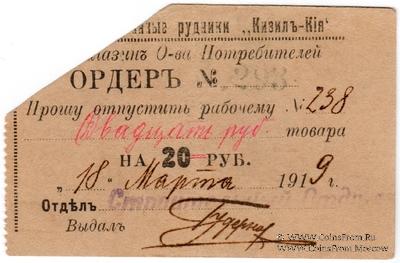 нные рудники „Кизилъ-Кія"
газинъ О-ва Потребителей
ОРДЕРЪ № 293
Прошу отпустить рабочему № 238
Двадцать руб. товара
НА 20 РУБ.
„ 18 " Марта 1919 г.
Отдѣлъ
Выдалъ
© WWW.CoinsFrom.Ru
CoinsFromMoscow